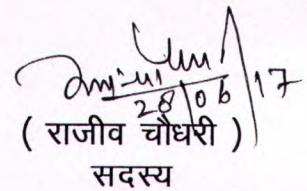 28/06/17
( राजीव चौधरी )
सदस्य